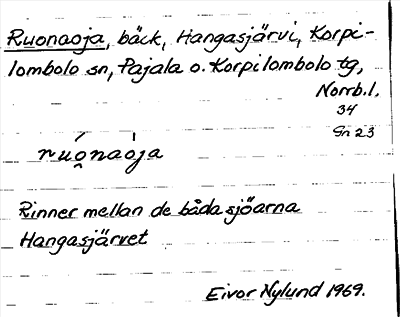 Ruonaoja, bäck, Hangasjärvi, Korpi-
lombolo sn, Pajala o. Korpilombolo tg,
Norrb.l.
34
Gri 23
rúo̯naòja
Rinner mellan de båda sjöarna
Hangasjärvet
Eivor Nylund 1969.